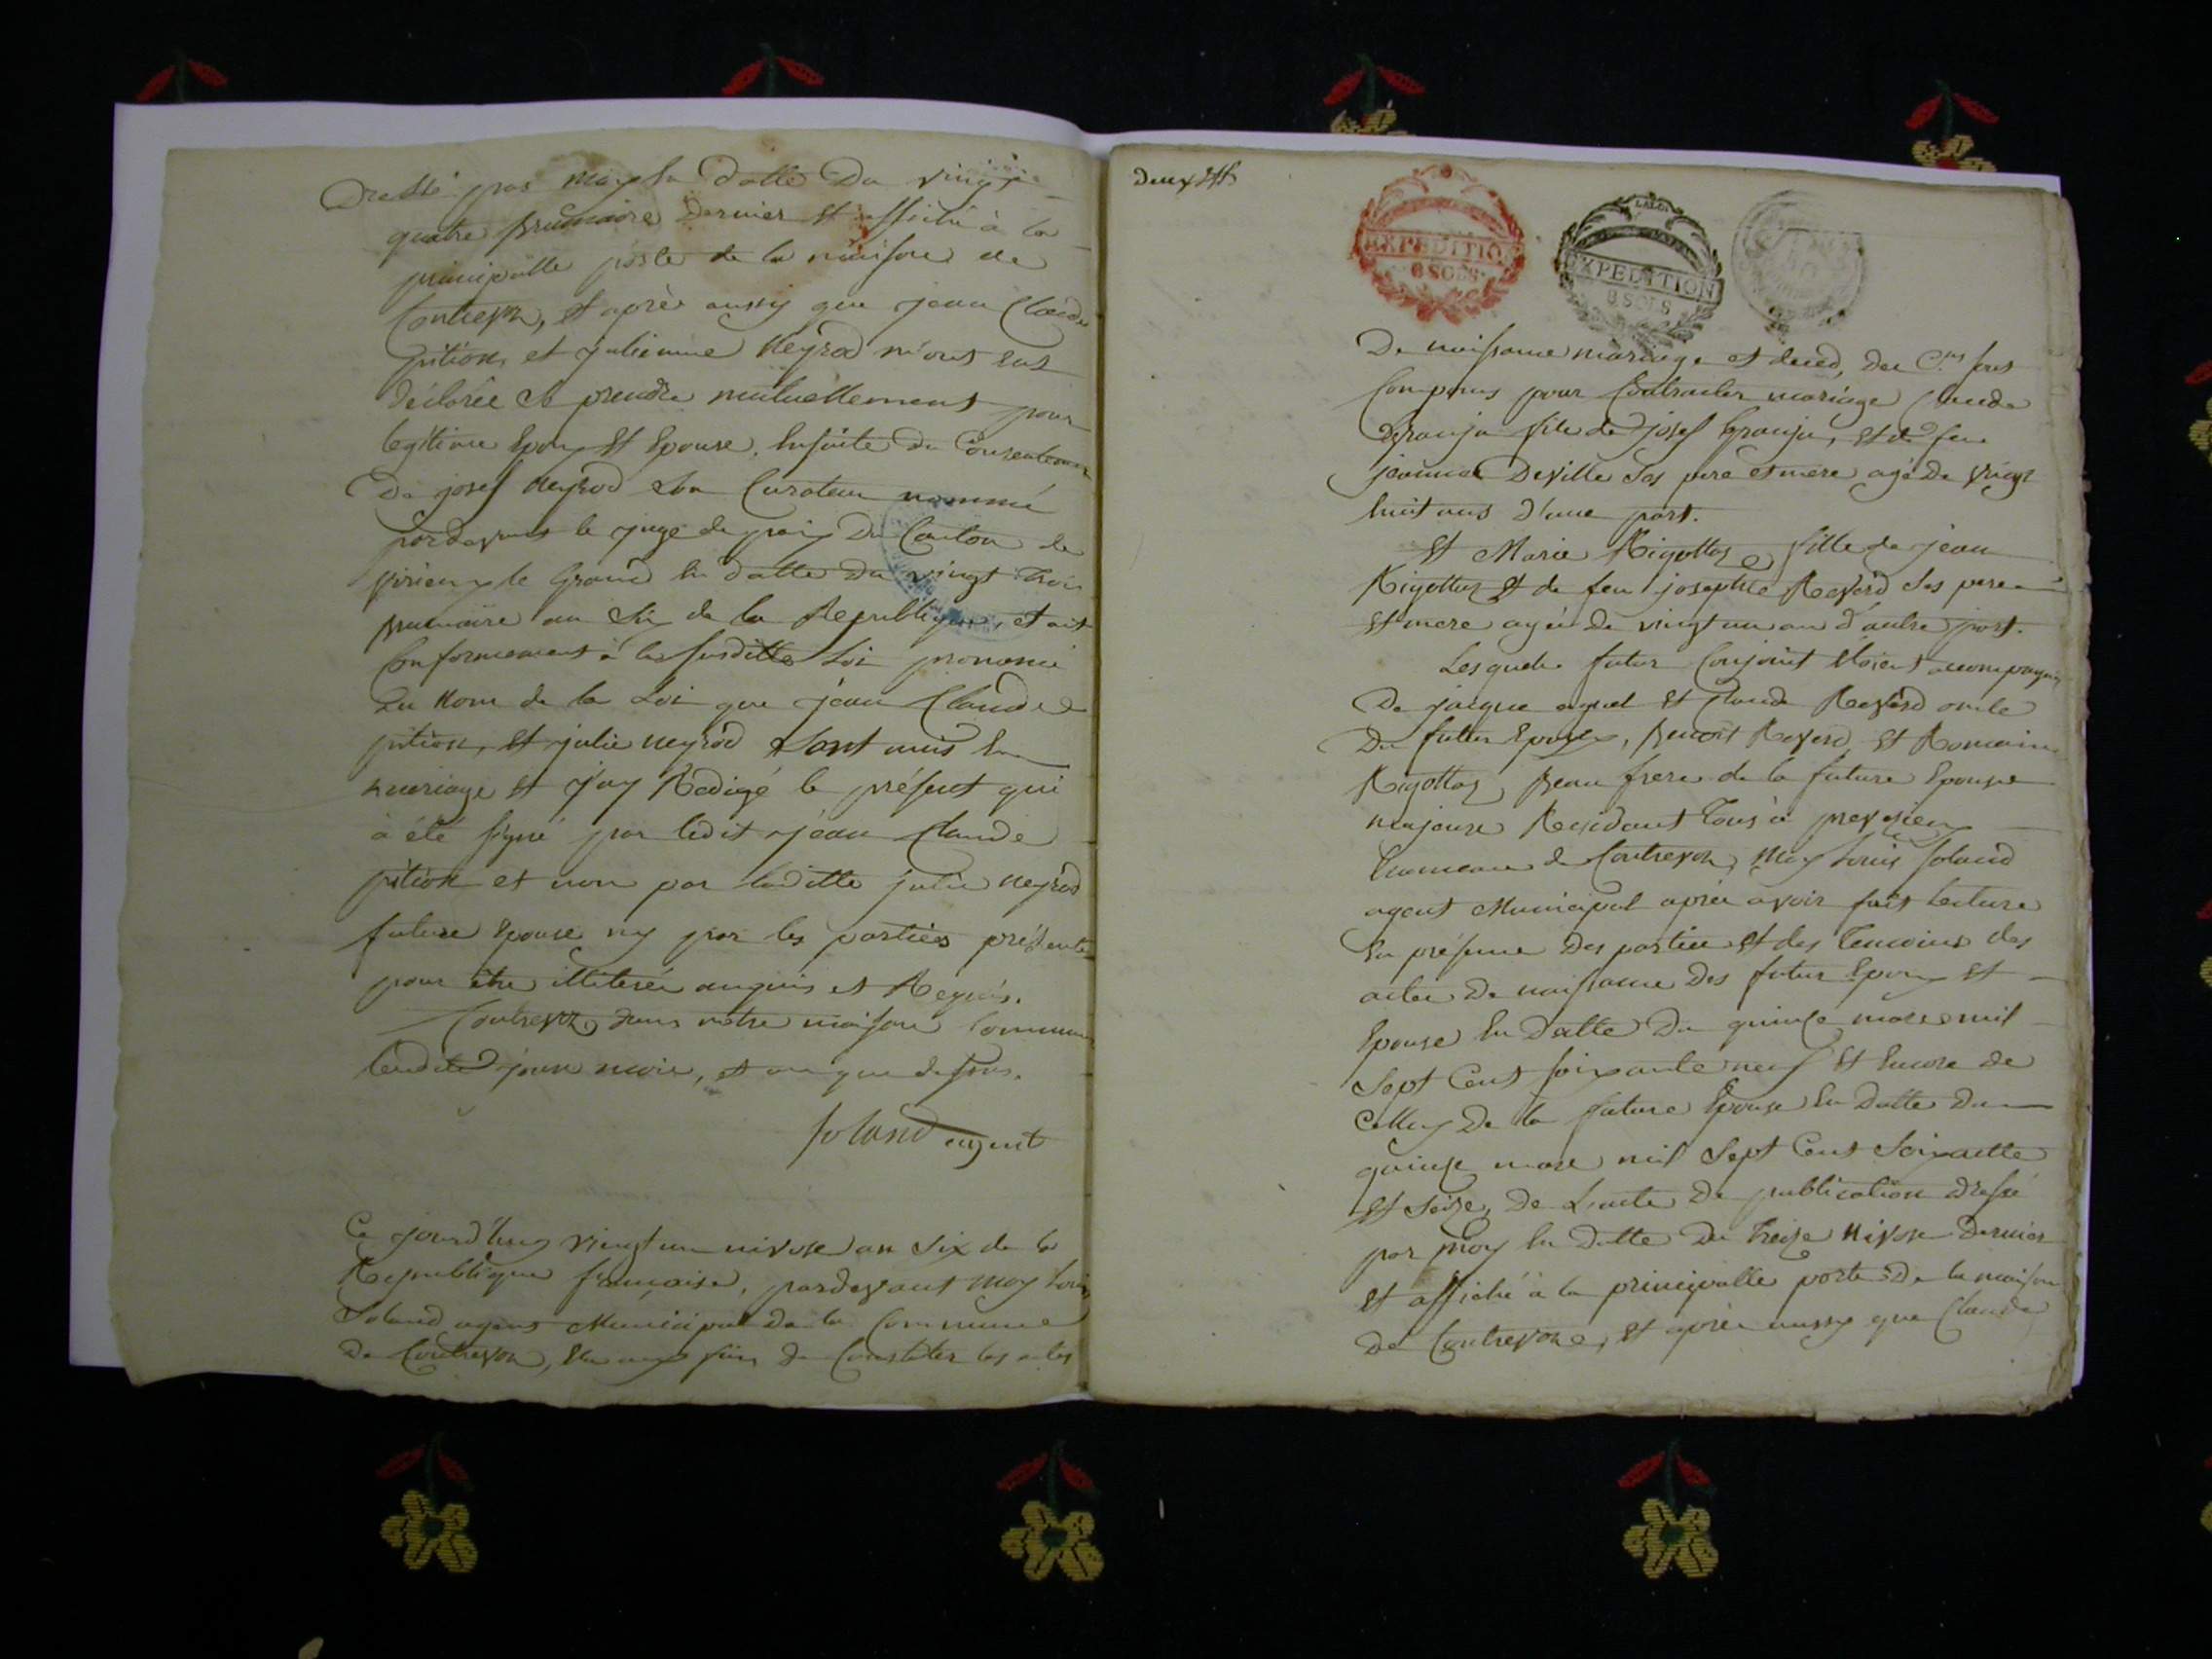 Dressé par moy en datte du vingt
quatre brumaire dernier et affiché à la
principalle porte de la maison de
Contrevoz, et après aussy que jean Claude
pition, et julienne Neyrod m'ont eut
déclarée se prendre mutuellement pour
legitime Epoux et Epouse, ensuite du Consentement
De josef neyrod son Curateur nommé
pardevant le juge de paix du Canton de
virieux le Grand en datte du vingt trois
brumaire an six de la Republique, et ait
Conformement à la susditte Loi prononcé
Au nom de la Loi que jean Claude
pition, et julie neyrod sont unis En
mariage et j'ay Redigé le présent qui
à été signé par ledit jean Claude
pition et non par laditte julie neyrod
future Epouse ny par les parties présentes
pour être illiterés enquis et Requis.
Contrevoz dans notre maison Commune
lesdits jour mois, et an que dessus.
Soland agent
Ce jourd'huy vingt un nivose an six de la
Republique française, pardevant moy Louis
Soland agent Municipal de la Commune
De Contrevoz, Elu aux fins de Constater les actes
Deux
EXPEDITION
6 SOLS
EXPEDITION
8 SOLS
De naissance mariage et deced, des C.ens sont
Comparus pour Contracter mariage Claude
Granju fils de josef Granju, et de feue
jeanne Deville ses pere et mere agé de vingt
huit ans d'une part.
Et Marie Rigottaz fille de jean
Rigottaz et de feu josephte Reverd ses pere
et mere agée de vingt un an d'autre part.
Lesquels futur Conjoint étoient accompagnés
De jacque et Claude Reverd oncle
Du futur Epoux, Benoit Reverd, et Romain
Rigottaz, Beau frere de la future Epouse
majeurs Residant tous à preveyzieu
hameau de Contrevoz, Moy Louis Soland
agent Municipal après avoir fait lecture
En présence des parties et des Temoins des
actes De naissance des futur Epoux et
Epouse En datte du quinze mars mil
Sept Cent soixante neuf et Encore de
Celluy de la future Epouse En datte du
quinze mars mil Sept Cent Soixante
et Seize, de L'acte de publication dressé
par moy En datte du Treize Nivose dernier
et affiché à la principalle porte de la maison
De Contrevoz, et après aussy que Claude